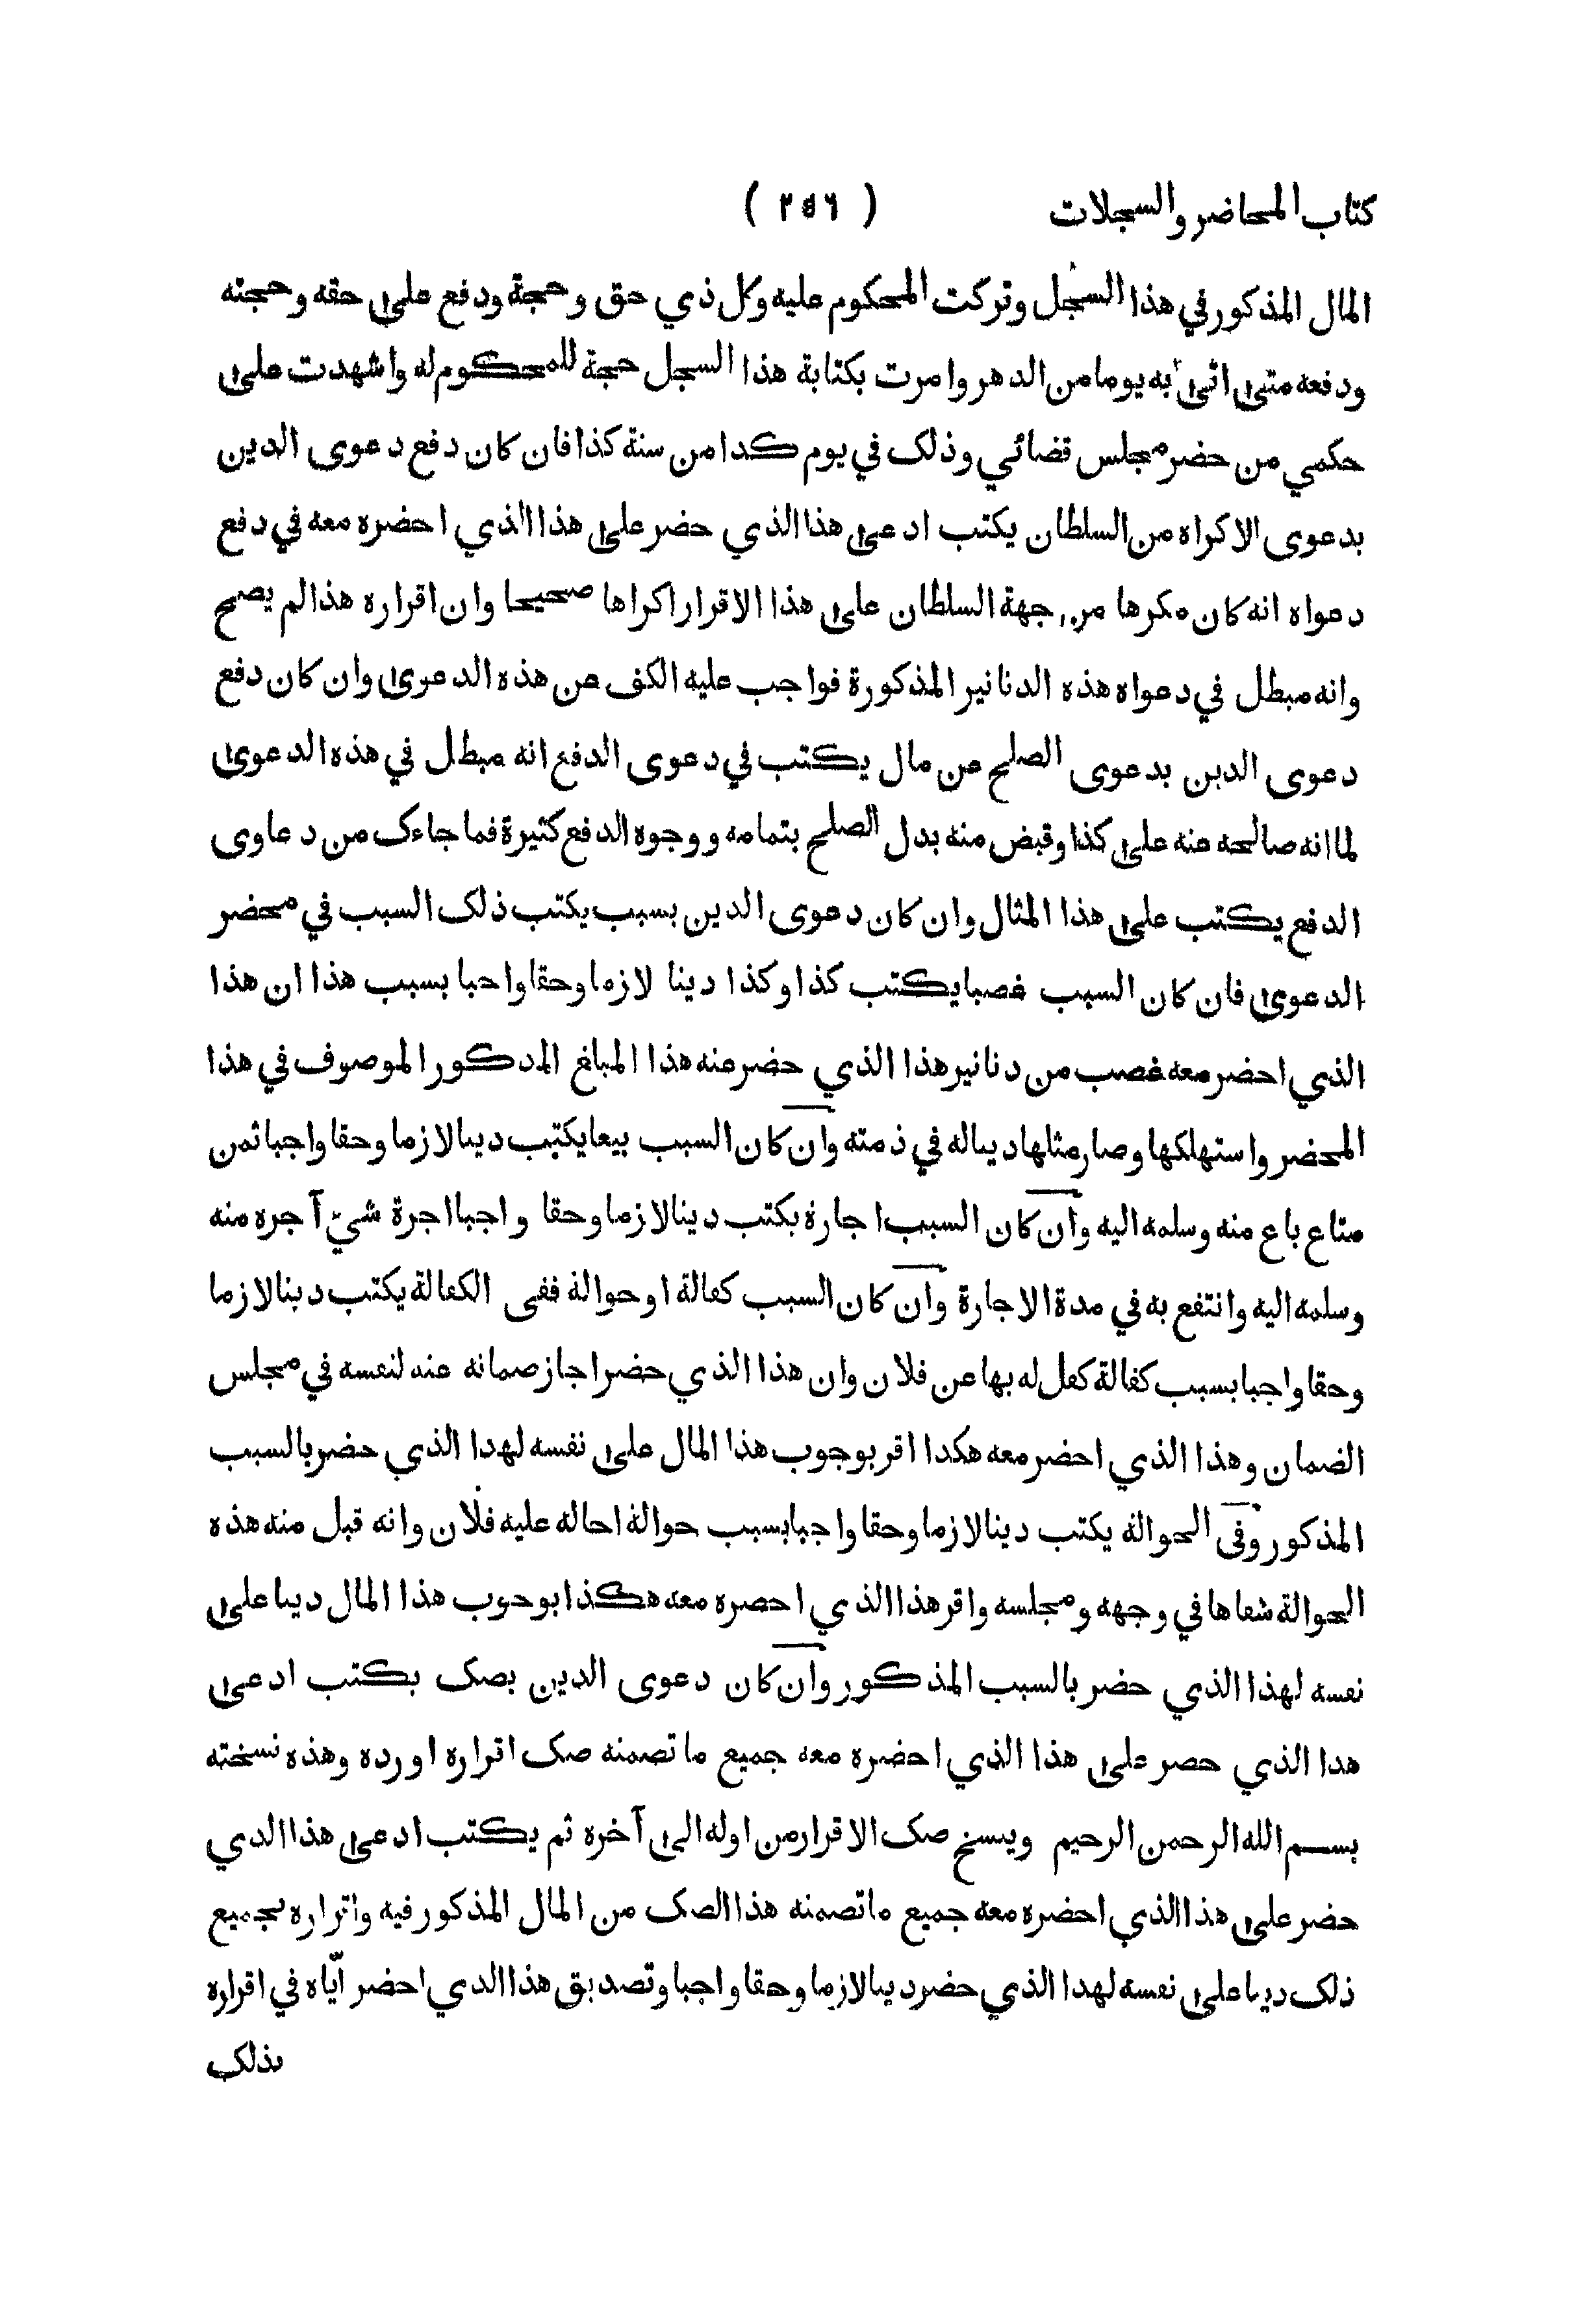 كتاب المحاضر والسجلات ( ٢٥٦ )
المال المذكور في هذا السجل وتركت المحكوم عليه وكل ذي حق وحجة ودفع على حقه وحجته
ودفعه متى اتى به يوما من الدهر وامرت بكتابة هذا السجل حجة للمحكوم له واشهدت على
حكمي من حضر مجلس قضائي وذلك في يوم كذا من سنة كذا فان كان دفع دعوى الدين
بدعوى الاكراه من السلطان يكتب ادعى هذا الذي حضر على هذا الذي احضره معه في دفع
دعواه انه كان مكرها من جهة السلطان على هذا الاقرار اكراها صحيحا وان اقراره هذا لم يصح
وانه مبطل في دعواه هذه الدنانير المذكورة فواجب عليه الكف عن هذه الدعوى وان كان دفع
دعوى الدين بدعوى الصلح عن مال يكتب في دعوى الدفع انه مبطل في هذه الدعوى
لما انه صالحه عنه على كذا وقبض منه بدل الصلح بتمامه ووجوه الدفع كثيرة فما جاءك من دعاوى
الدفع يكتب على هذا المثال وان كان دعوى الدين بسبب يكتب ذلك السبب في محضر
الدعوى فان كان السبب غصبا يكتب كذا وكذا دينا لازما وحقا واجبا بسبب هذا ان هذا
الذي احضر معه غصب من دنانير هذا الذي حضر عنه هذا المبلغ المذكور الموصوف في هذا
المحضر واستهلكها وصار مثلها دينا له في ذمته وان كان السبب بيعا يكتب دينا لازما وحقا واجبا ثمن
متاع باع منه وسلمه اليه وان كان السبب اجارة يكتب دينا لازما وحقا واجبا اجرة شيء آجره منه
وسلمه اليه وانتفع به في مدة الاجارة وان كان السبب كفالة او حوالة ففى الكفالة يكتب دينا لازما
وحقا واجبا بسبب كفالة كفل له بها عن فلان وان هذا الذي حضر اجاز ضمانه عنه لنفسه في مجلس
الضمان وهذا الذي احضر معه هكذا اقر بوجوب هذا المال على نفسه لهذا الذي حضر بالسبب
المذكور وفى الحوالة يكتب دينا لازما وحقا واجبا بسبب حوالة احاله عليه فلان وانه قبل منه هذه
الحوالة شفاها في وجهه ومجلسه واقر هذا الذي احضره معه هكذا بوجوب هذا المال دينا على
نفسه لهذا الذي حضر بالسبب المذكور وان كان دعوى الدين بصك يكتب ادعى
هذا الذي حضر على هذا الذي احضره معه جميع ما تضمنه صك اقراره اورده وهذه نسخته
بسم الله الرحمن الرحيم وينسخ صك الاقرار من اوله الى آخره ثم يكتب ادعى هذا الذي
حضر على هذا الذي احضره معه جميع ما تضمنه هذا الصك من المال المذكور فيه واقراره بجميع
ذلك دينا على نفسه لهذا الذي حضر دينا لازما وحقا واجبا وتصديق هذا الذي احضر ايّاه في اقراره
بذلك